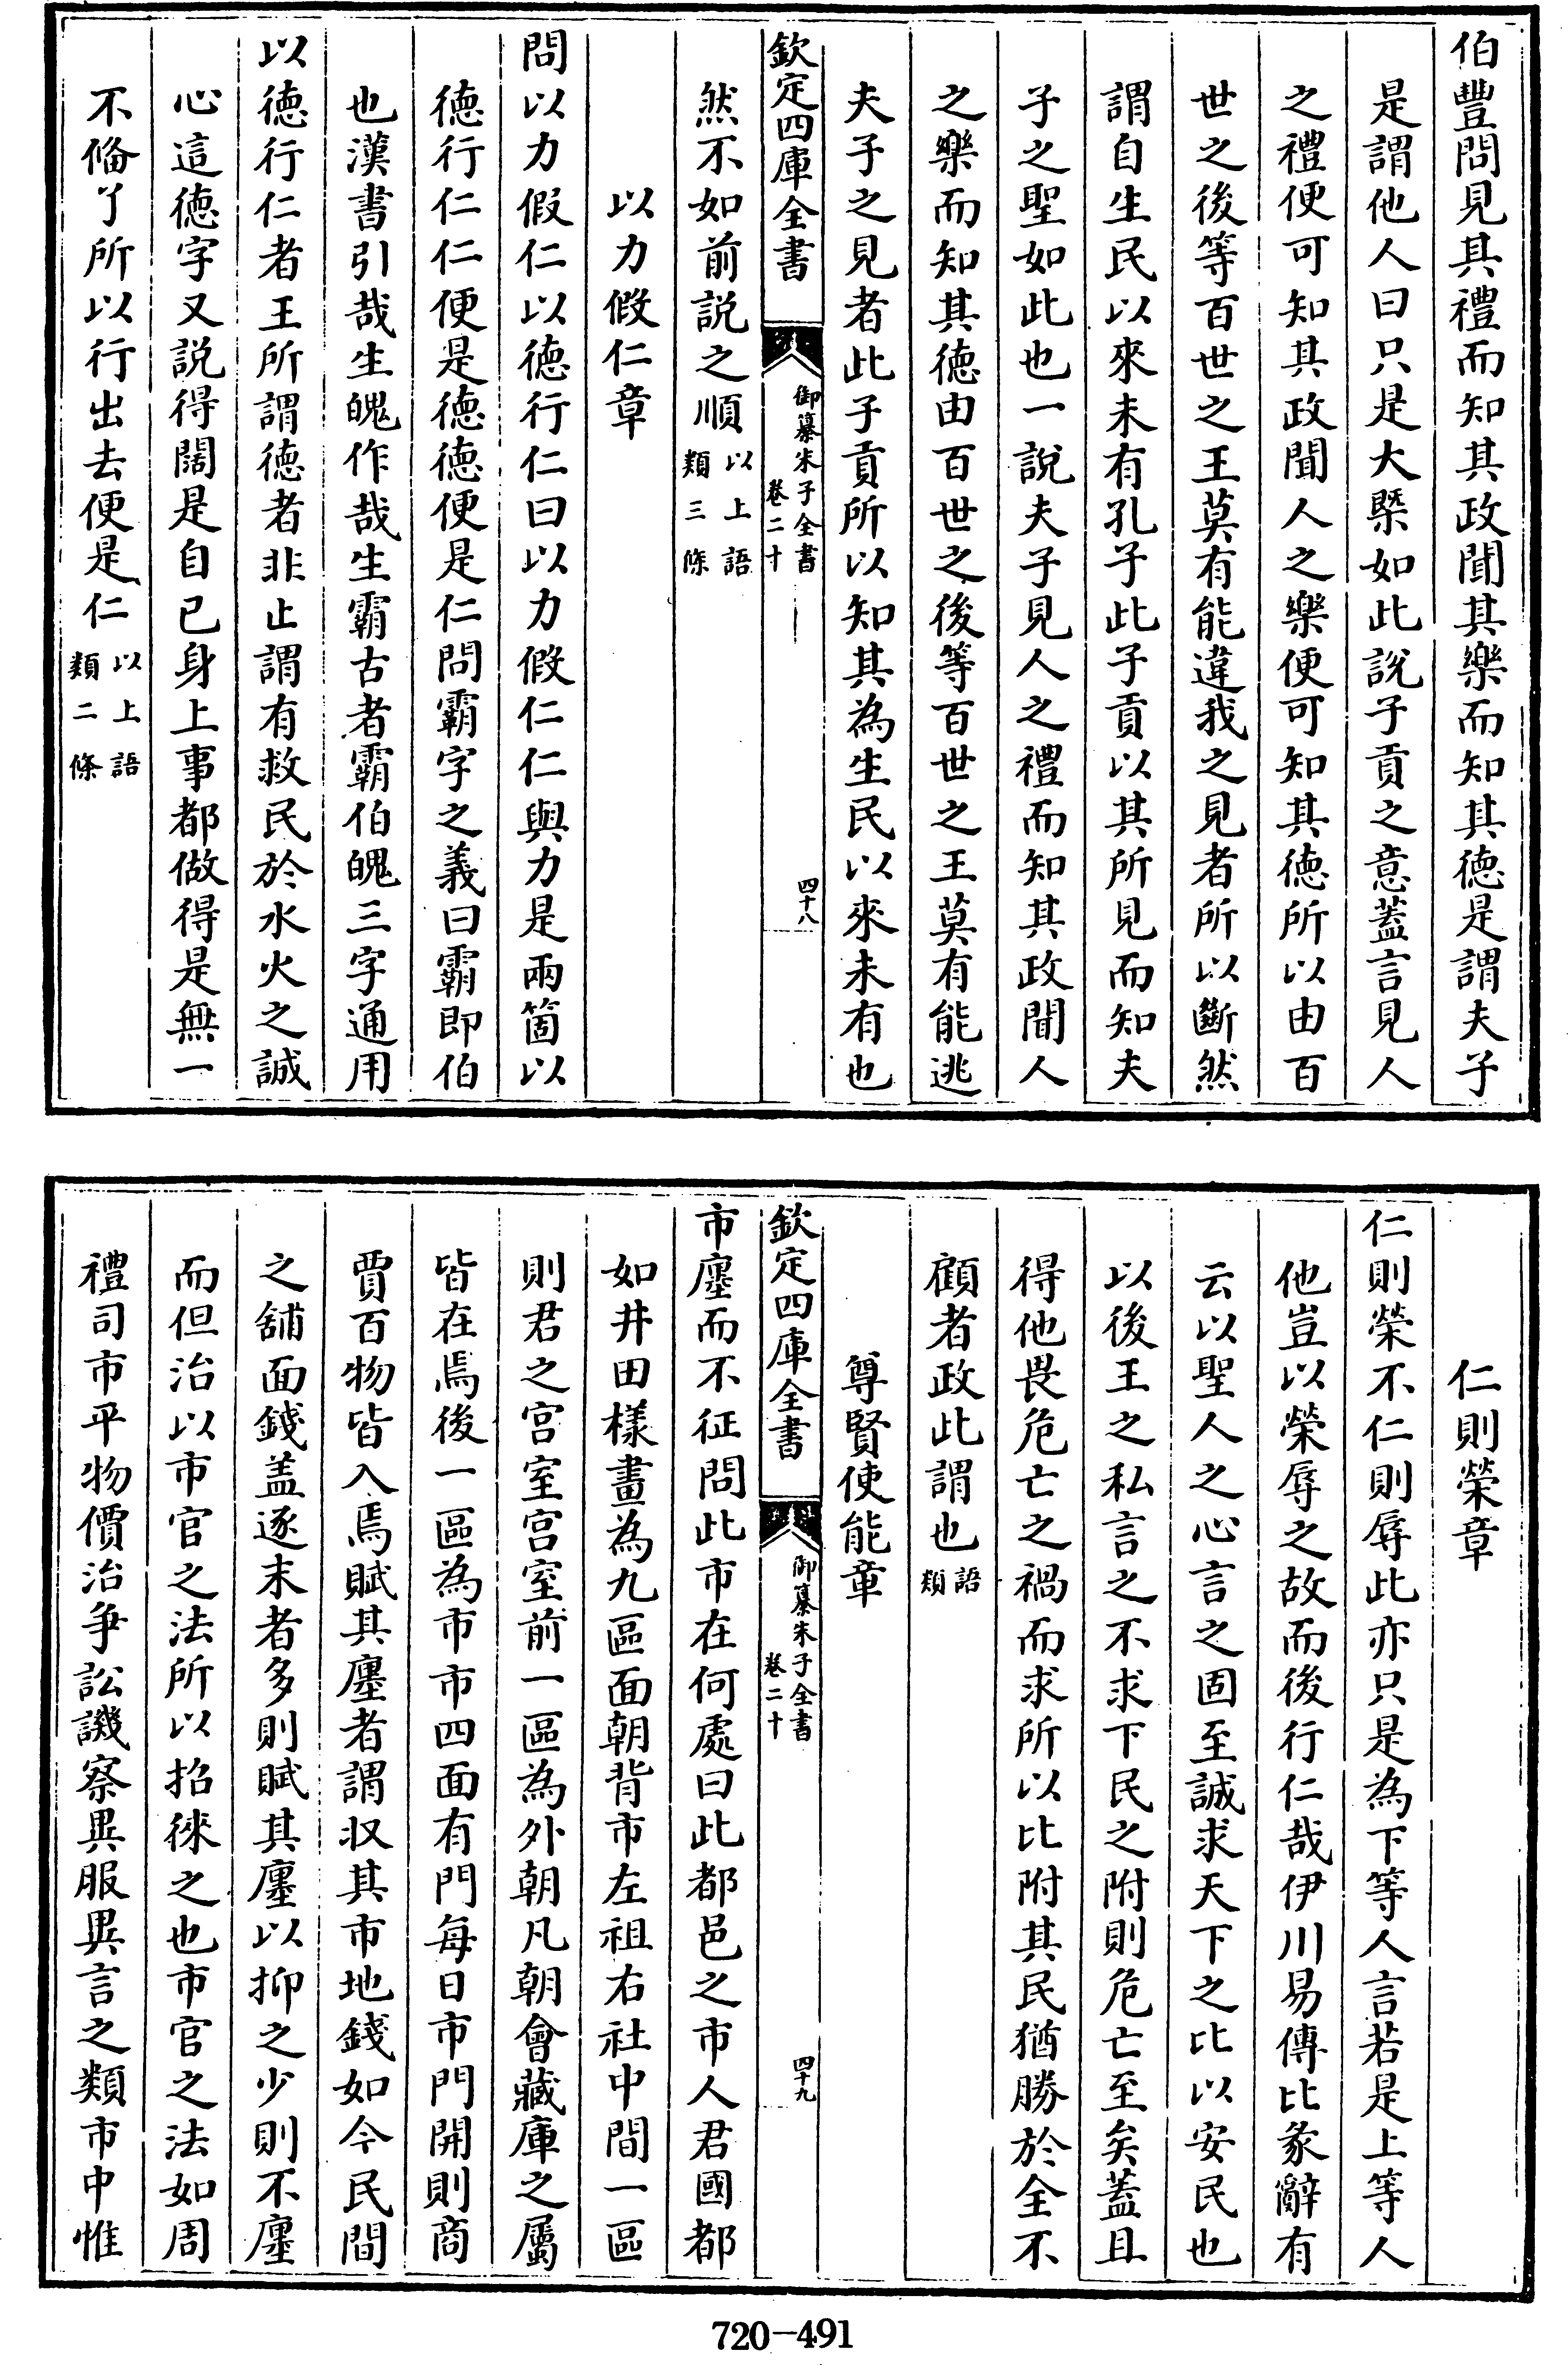 伯豐問見其禮而知其政聞其樂而知其徳是謂夫子
是謂他人曰只是大槩如此說子貢之意蓋言見人
之禮便可知其政聞人之樂便可知其徳所以由百
世之後等百世之王莫有能違我之見者所以斷然
謂自生民以來未有孔子此子貢以其所見而知夫
子之聖如此也一說夫子見人之禮而知其政聞人
之樂而知其徳由百世之後等百世之王莫有能逃
夫子之見者此子貢所以知其為生民以來未有也
欽定四庫全書
御纂朱子全書
卷二十
四十八
然不如前説之順以上語
類三條
以力假仁章
問以力假仁以徳行仁曰以力假仁仁與力是兩箇以
徳行仁仁便是徳徳便是仁問霸字之義曰霸即伯
也漢書引哉生魄作哉生霸古者霸伯魄三字通用
以徳行仁者王所謂徳者非止謂有救民於水火之誠
心這徳字又説得闊是自已身上事都做得是無一
不偹了所以行出去便是仁以上語
類二條
仁則榮章
仁則榮不仁則辱此亦只是為下等人言若是上等人
他豈以榮辱之故而後行仁哉伊川易傳比彖辭有
云以聖人之心言之固至誠求天下之比以安民也
以後王之私言之不求下民之附則危亡至矣蓋且
得他畏危亡之禍而求所以比附其民猶勝於全不
顧者政此謂也語
類
尊賢使能章
欽定四庫全書
御纂朱子全書
卷二十
四十九
市廛而不征問此市在何處曰此都邑之市人君國都
如井田様畫為九區面朝背市左祖右社中間一區
則君之宫室宫室前一區為外朝凡朝會藏庫之屬
皆在焉後一區為市市四面有門每日市門開則商
賈百物皆入焉賦其廛者謂収其市地錢如今民間
之舖面錢盖逐末者多則賦其廛以抑之少則不廛
而但治以市官之法所以招徠之也市官之法如周
禮司市平物價治爭訟譏察異服異言之類市中惟
720-491